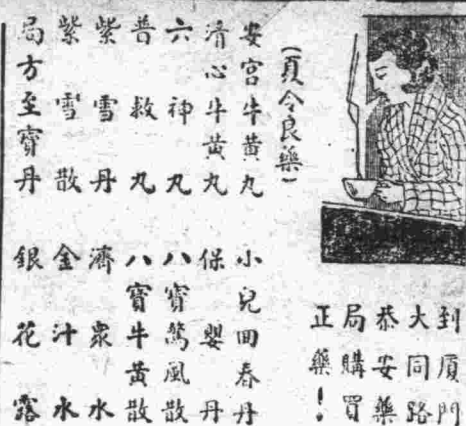 到厦門
大同路
恭安藥
局購買
正藥！
(夏令良藥)
安宮牛黃丸 小兒回春丹
清心牛黃丸 保嬰丹
六神丸 八寶驚風散
普救丸 八寶牛黃散
紫雪丹 濟眾水
紫雪散 金汁水
局方至寶丹 銀花露